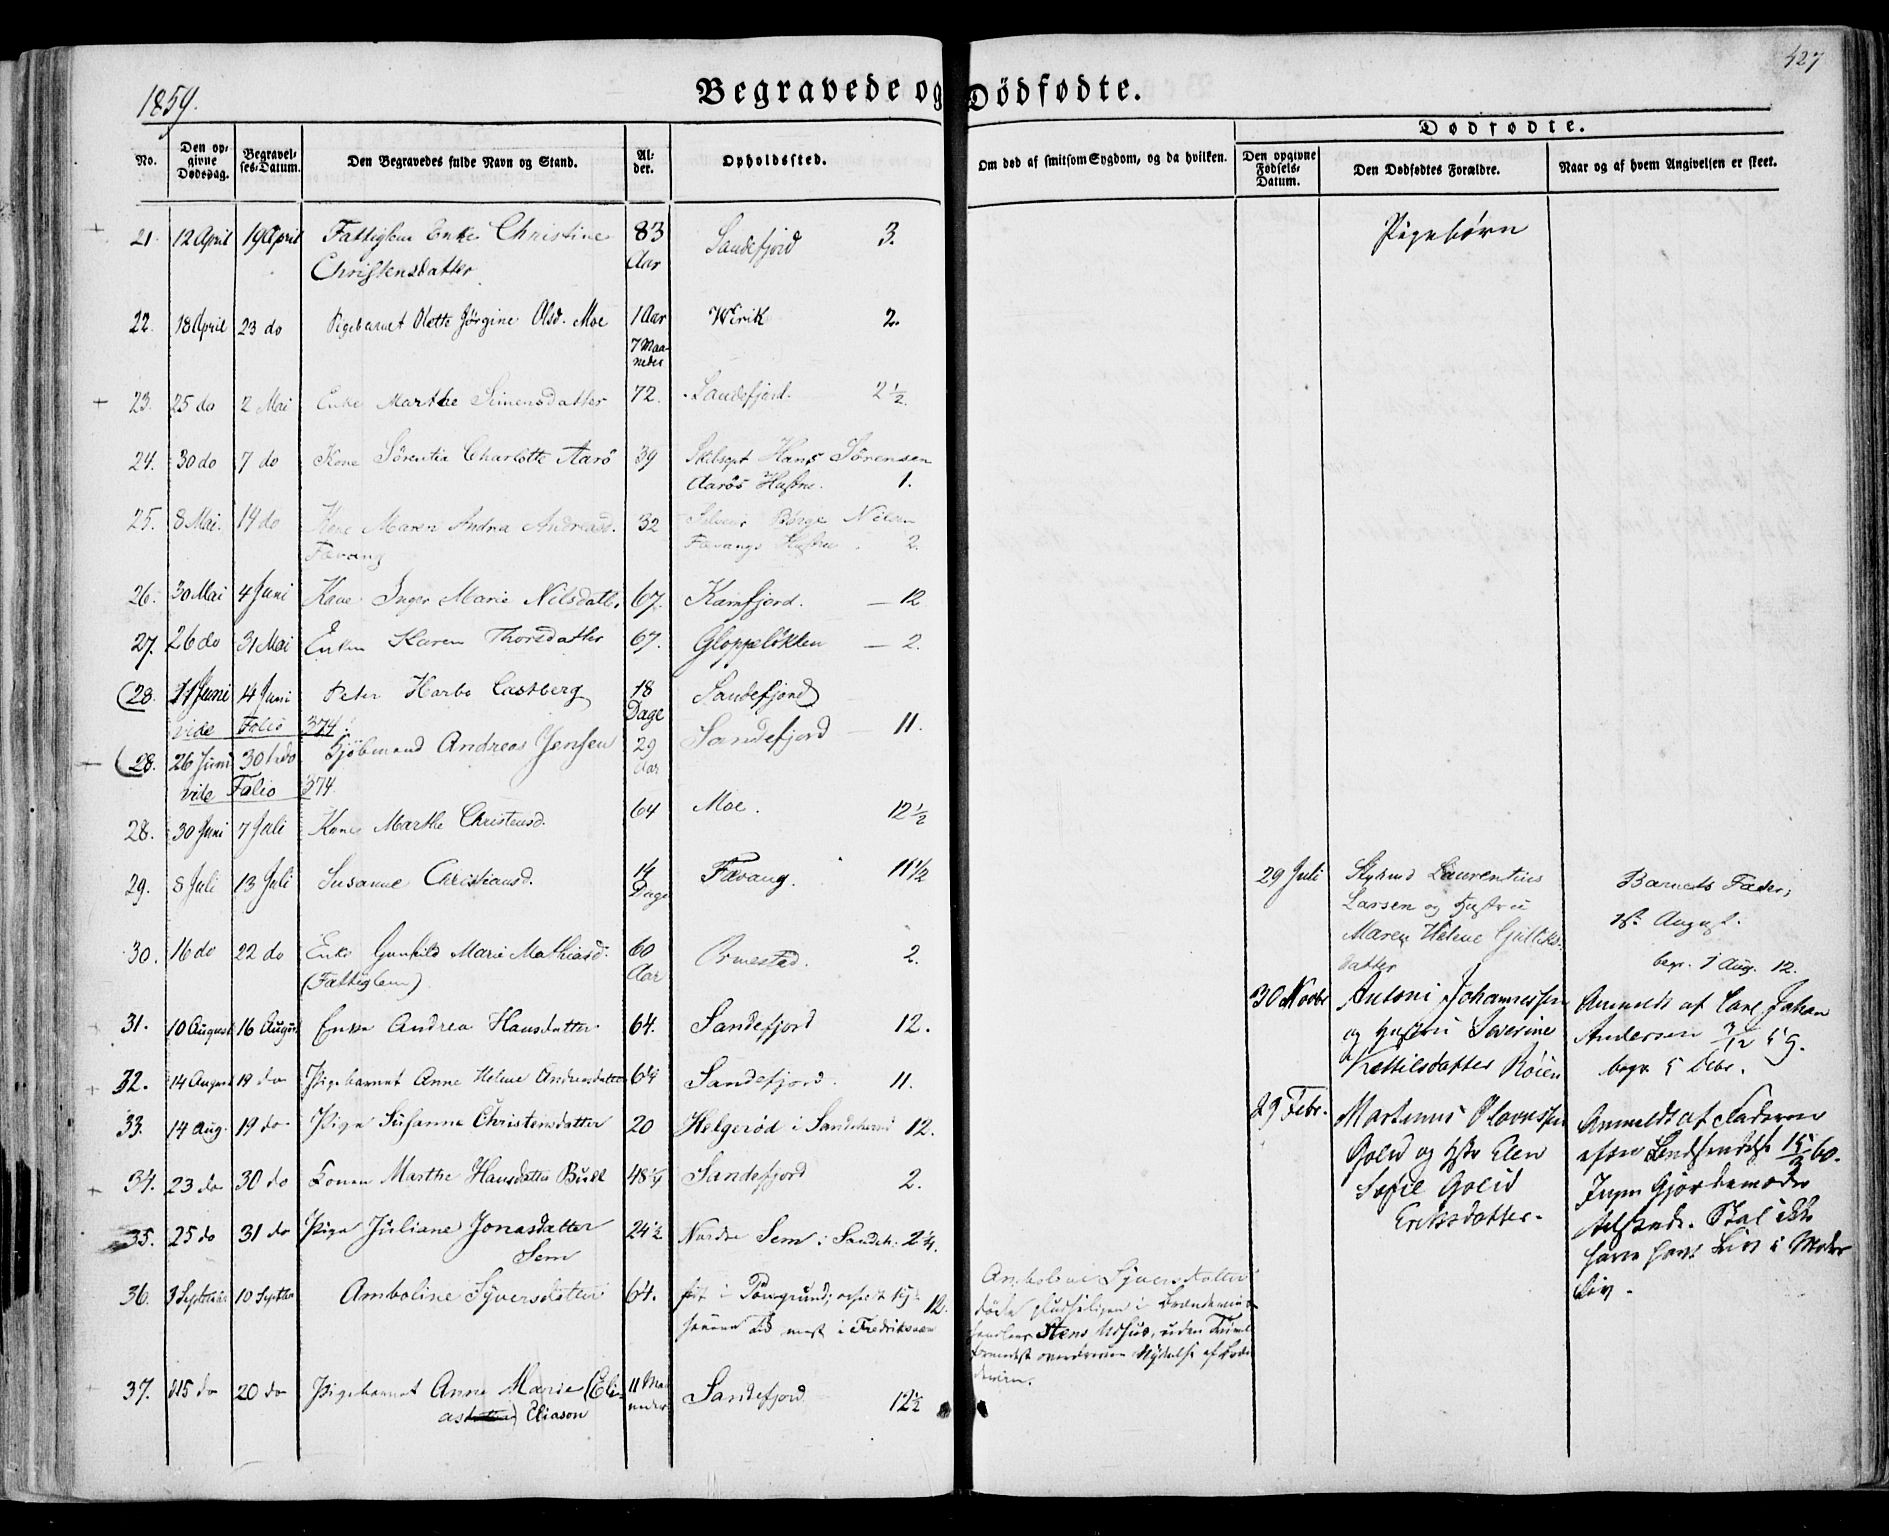 427
1859.
Begravede og Dödfødte.
Dødfødte.
No.
Den opgivne Dødsdag.
Begravelses-Datum.
Den Begravedes fulde Navn og Stand.
Alder.
Opholdssted.
Om død af smitsom Sygdom, og da hvilken.
Den opgivne Fødsels-Datum.
Den Dødfødtes Forældre.
Naar og af hvem Angivelsen er skeet.
21. 12 April 19 April Fattiglem Enke Christine 83 Sandefjord 3.
Christensdatter Aar
22. 18 April 23 do Pigebarnet Olette Jörgine Olsd. Moe 1 Aar Wirik 2.
7 Maaneder
23. 25 do 2 Mai Enke Marthe Simensdatter 72. Sandefjord. 2 1/2.
24. 30 do 7 do Kone Sörentia Charlotte Aarö 39 Skibscpt Hans Sörensen
Aarös Hustru. 1.
25. 8 Mai. 14 do Kone Maren Andrea Andreasd. 32 Börge Nilsen
Fævang Fævangs Hustru. 2.
26. 30 Mai 4 Juni Kone Inger Marie Nilsdatter 67. Kamfjord. — 12
27. 26 do 31 Mai Enken Karen Thorsdatter 67. Gloppeløkken — 2.
(28. 11 Juni 4 Juni Peter Harbo Castberg 18 Sandefjord
vide Folio 374. Dage
(28. 26 Juni 30 Kjöbmand Andreas Jensen 29 Sandefjord — 11.
vide Folio 374. Aar
28. 30 Juni 7 Juli Kone Marthe Christensd. 64 Moe. 12 1/2
29. 8 Juli 13 Juli Susanne Christiansd. 14 Fævang. 11 1/2
Dage
30. 16 do 22 do Enke Gunhild Marie Mathiasd. 60 Ormestad. 2.
(Fattiglem) Aar
31. 10 August 16 August Enke Andrea Hansdatter 64. Sandefjord 12.
32. 14 August 19 do Pigebarnet Anne Helene Andreasdatter 6 Sandefjord. 11.
33. 14 Aug. 19 do Pige Susanne Christensdatter 20 Helgerød i Sandeherred 12.
34. 23 do 30 do Konen Marthe Hansdatter Bull 48 1/4 Sandefjord 2.
35. 25 do 31 do Pige Juliane Jonasdatter 24 1/2 Nordre Sem i Sandeh. 2 1/4.
Sem
36. 3 September 10 Septbr Amboline Syversdatter 64. født i Porsgrund, 12.
Tid mest i Fredriksværn
37. 15 do 20 do Pigebarnet Anne Marie (Eli- 11 Maaneder Sandefjord 12 1/2
asdatter) Eliason
Amboline Syversdatter
døde pludseligen i Brændeviins
handler Stens Udhus, uden Tvivl
overdreven Nydelse af Brændeviin.
Pigebørn
29 Juli Laurentius
Larsen og Hustru
Maren Helene Gulliksdatter
Barnets Fader,
1ste August.
begr. 1 Aug. 12.
30 Novbr Antoni Johannessen
og Hustru Severine
Kettilsdatter Röien
Anmeldt af Carl Johan
Andersen 3/12 59.
begr. 5 Debr.
29 Febr. Martinus Olavessen
Golid og Hstr Elen
Sofie Golid
Eriksdatter.
Anmeldt af Faderen
15/3 60.
Ingen Gjordemoder
tilstede. Skal ikke
have havt Liv i Moders
Liv.